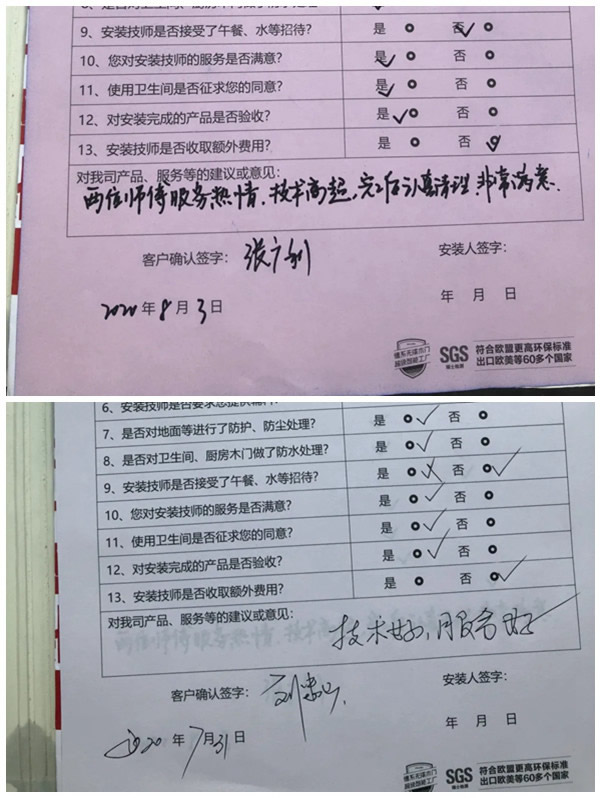 9、安装技师是否接受了午餐、水等招待？ 是 否
10、您对安装技师的服务是否满意？ 是 否
11、使用卫生间是否征求您的同意？ 是 否
12、对安装完成的产品是否验收？ 是 否
13、安装技师是否收取额外费用？ 是 否
对我司产品、服务等的建议或意见：
两位师傅服务热情，技术高超，完工后认真清理 非常满意.
客户确认签字： 安装人签字：
2020年8月3日 年 月 日
SGS 符合欧盟更高环保标准
出口欧美等60多个国家
7、是否对地面等进行了防护、防尘处理？ 是 否
8、是否对卫生间、厨房木门做了防水处理？ 是 否
9、安装技师是否接受了午餐、水等招待？ 是 否
10、您对安装技师的服务是否满意？ 是 否
11、使用卫生间是否征求您的同意？ 是 否
12、对安装完成的产品是否验收？ 是 否
13、安装技师是否收取额外费用？ 是 否
对我司产品、服务等的建议或意见：
技术好，服务好
客户确认签字： 安装人签字：
2020年7月31日 年 月 日
SGS 符合欧盟更高环保标准
出口欧美等60多个国家